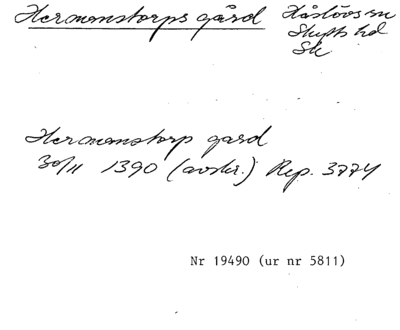 Hermanstorps gård Håslövs sn
Skytts hd
Sk
Hermanstorp gard
30/11 1390 (avskr.) Rep. 3774
Nr 19490 (ur nr 5811)